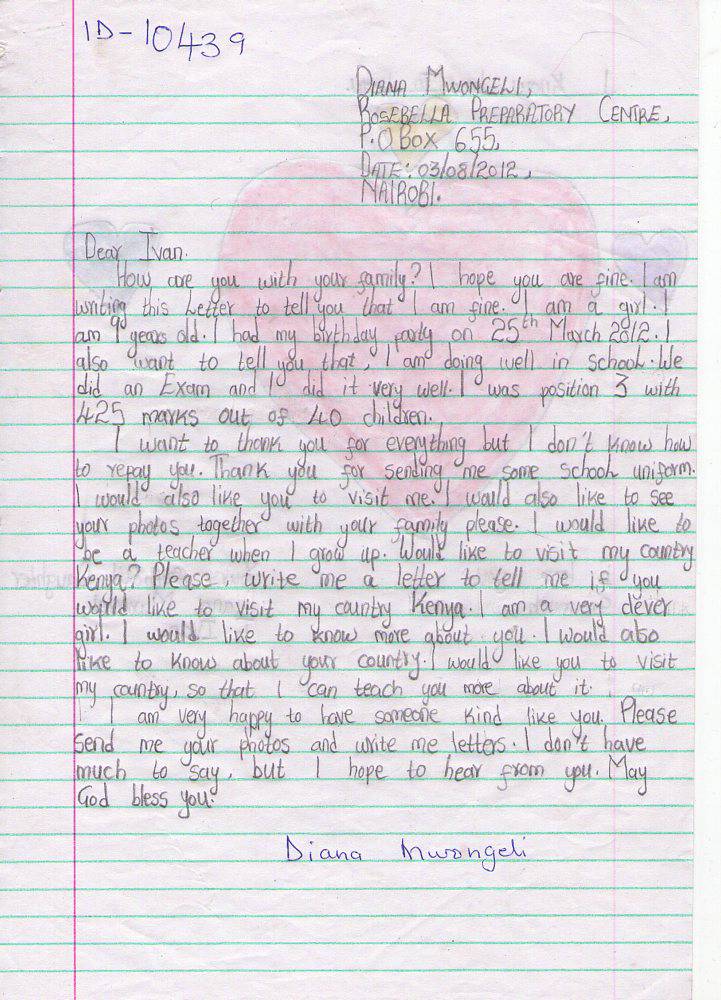 ID-10439
DIANA MWONGELI,
ROSEBELLA PREPARATORY CENTRE,
P.O BOX 655,
DATE: 03/08/2012,
NAIROBI.
Dear Ivan.
How are you with your family? I hope you are fine. I am
writing this Letter to tell you that I am fine. I am a girl. I
am 9 years old. I had my birthday party on 25th March 2012. I
also want to tell you that, I am doing well in school. We
did an Exam and I did it very well. I was position 3 with
425 marks out of 40 children.
I want to thank you for everything but I don't know how
to repay you. Thank you for sending me some school uniform.
I would also like you to visit me. I would also like to see
your photos together with your family please. I would like to
be a teacher when I grow up. Would like to visit my country
Kenya? Please, write me a letter to tell me if you
world like to visit my country Kenya. I am a very clever
girl. I would like to know more about you. I would also
like to know about your country. I would like you to visit
my country, so that I can teach you more about it.
I am very happy to have someone kind like you. Please
send me your photos and write me letters. I don't have
much to say, but I hope to hear from you. May
God bless you.
Diana Mwongeli